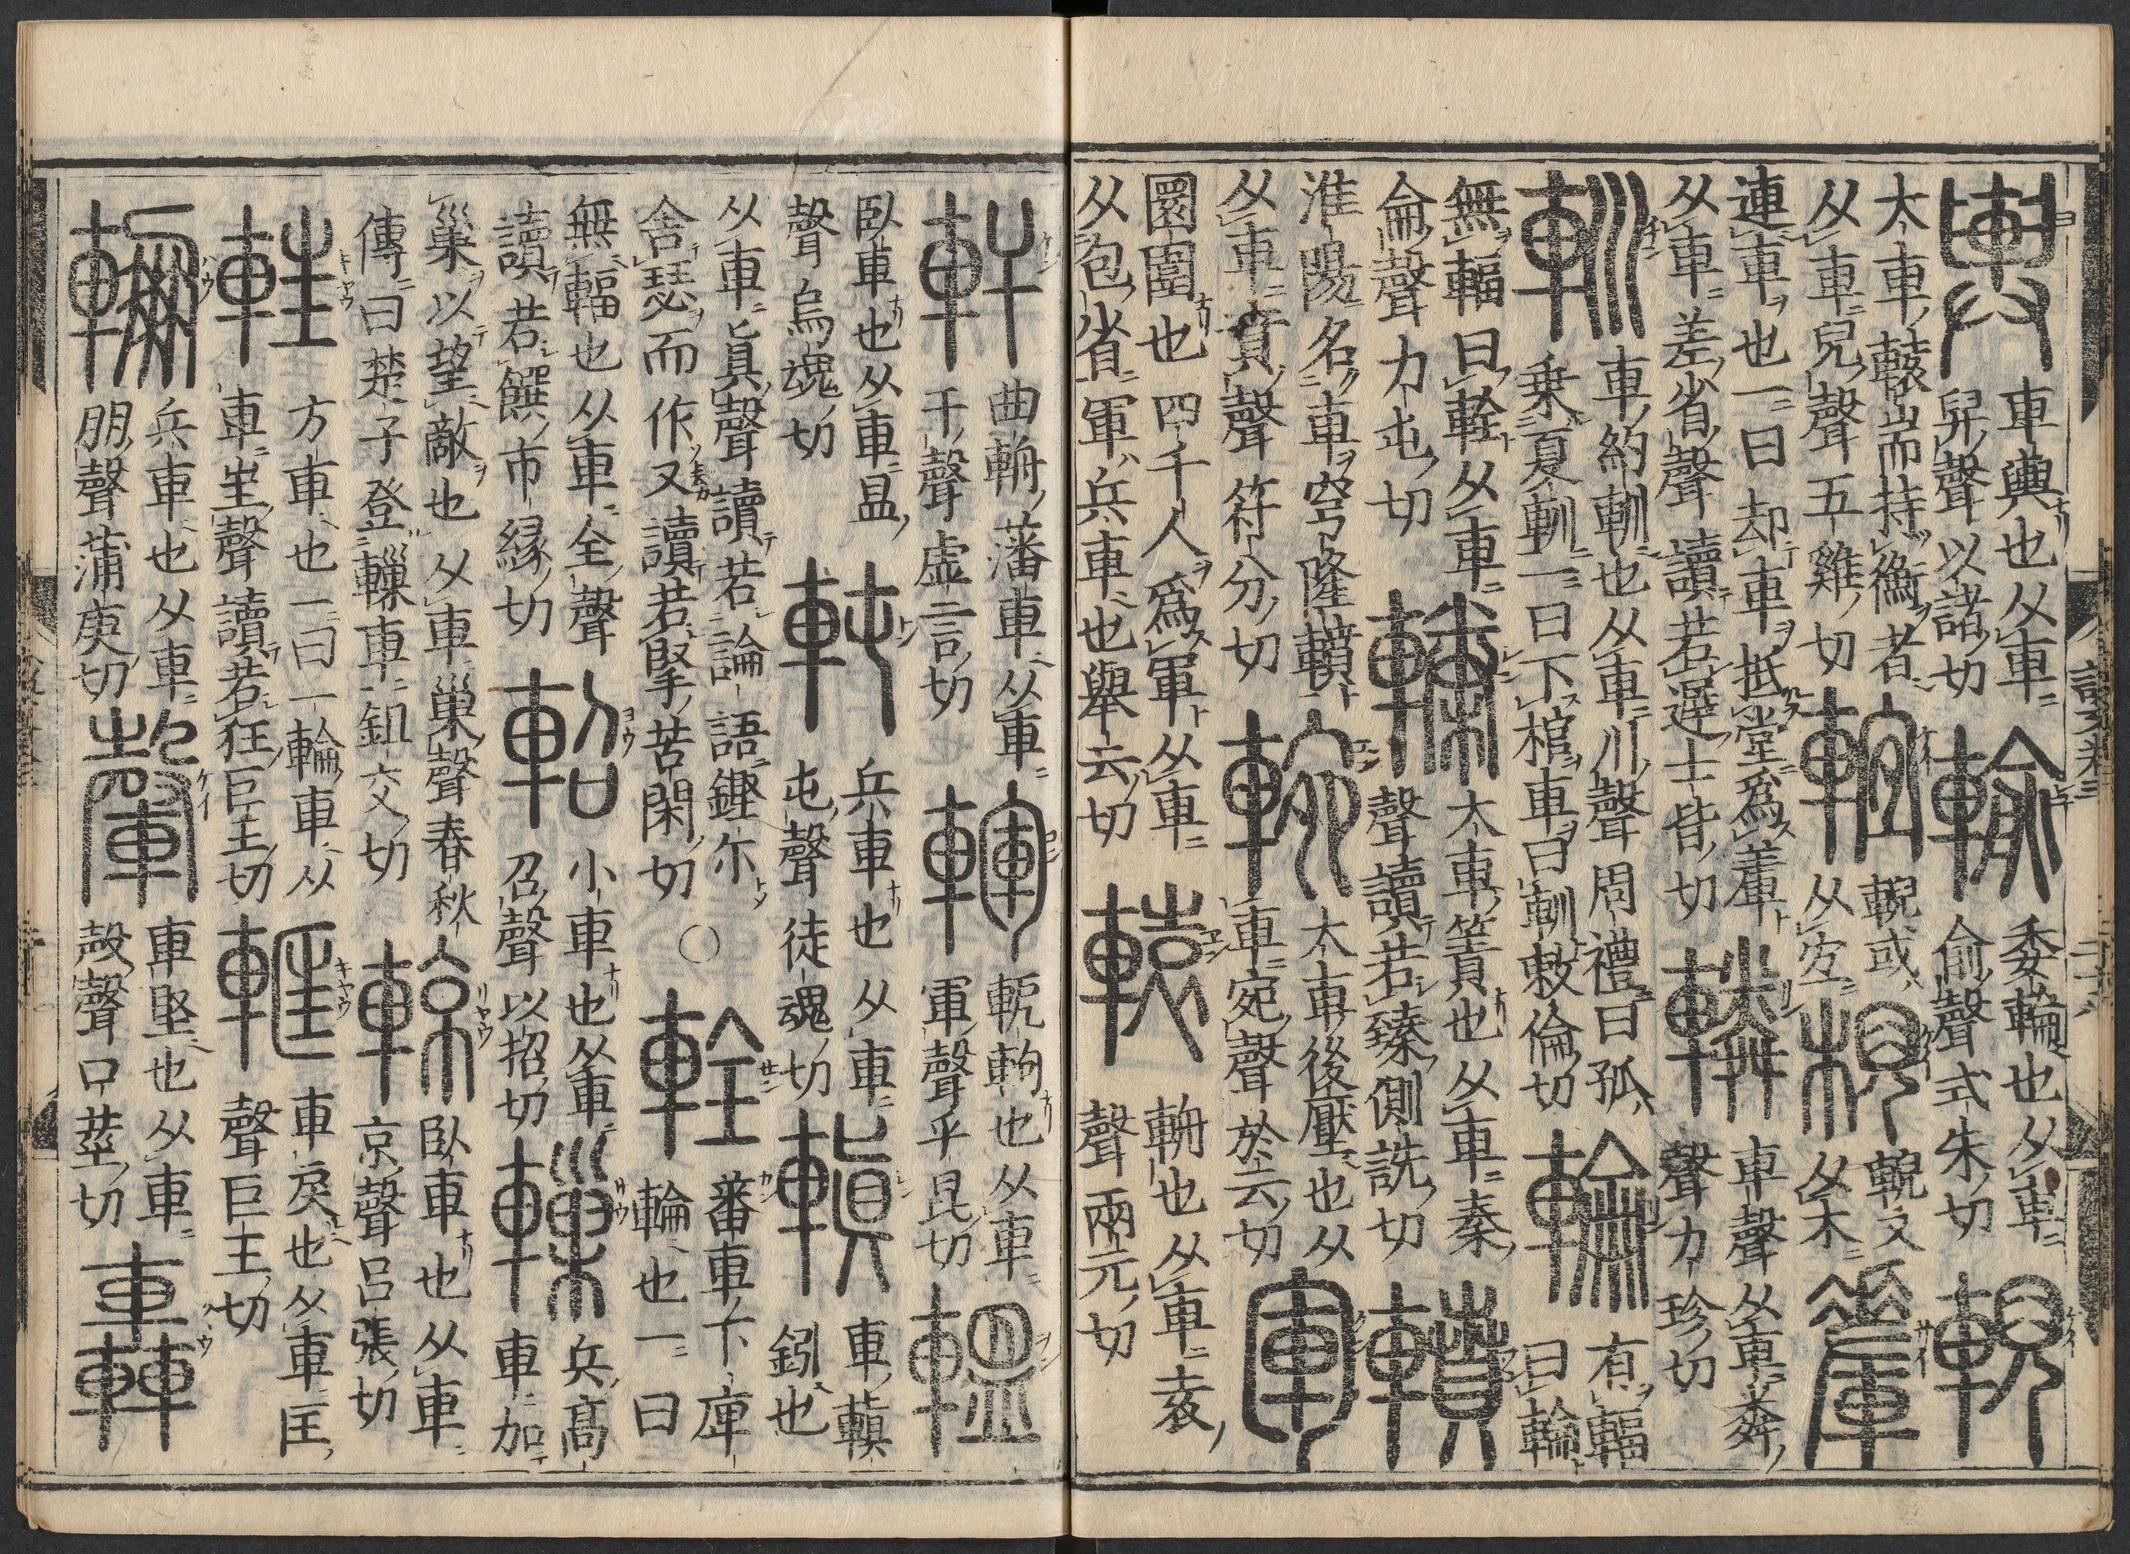 輿
車輿也从車
舁聲以諸切
輸
委輪也从車
俞聲式朱切
輗
大車轅耑持衡者
从車兒聲五雞切
𨋾
輗或
从宐
棿
輗又
从木
𨍏
連車也一曰却車抵堂爲𨍏
从車差省聲讀若遲士皆切
轔
車聲从車粦
聲力珍切
𨊽
車約𨊽也从車川聲周禮曰孤
乗夏𨊽一曰下棺車曰𨊽敕倫切
輪
有輻
曰輪
無輻曰輇从車
侖聲力屯切
轃
大車簀也从車秦
聲讀若臻側詵切
轒
淮陽名車穹隆轒
从車賁聲符分切
䡝
大車後壓也从
車宛聲於云切
軍
圜圍也四千人爲軍从車
从包省軍兵車也舉云切
轅
輈也从車袁
聲兩元切
軒
曲輈藩車从車
干聲虛言切
䡣
軶軥也从車
軍聲乎昆切
輼
臥車也从車𥁕
聲烏魂切
軘
兵車也从車
屯聲徒魂切
䡩
車䡩
釼也
从車眞聲讀若論語鏗尓
舍瑟而作又讀若掔苦閑切
○
輇
蕃車下庳
輪也一曰
無輻也从車全聲
讀若饌市緣切
軺
小車也从車
召聲以招切
轈
兵高
車加
巢以望敵也从車巢聲春秋
傳曰楚子登轈車鉏交切
輬
臥車也从車
京聲呂張切
軖
方車也一曰一輪車从
車㞷聲讀若狂巨王切
𨋕
車戾也从車匡
聲巨王切
輣
兵車也从車
朋聲蒲庚切
䡰
車堅也从車
殸聲口莖切
轟